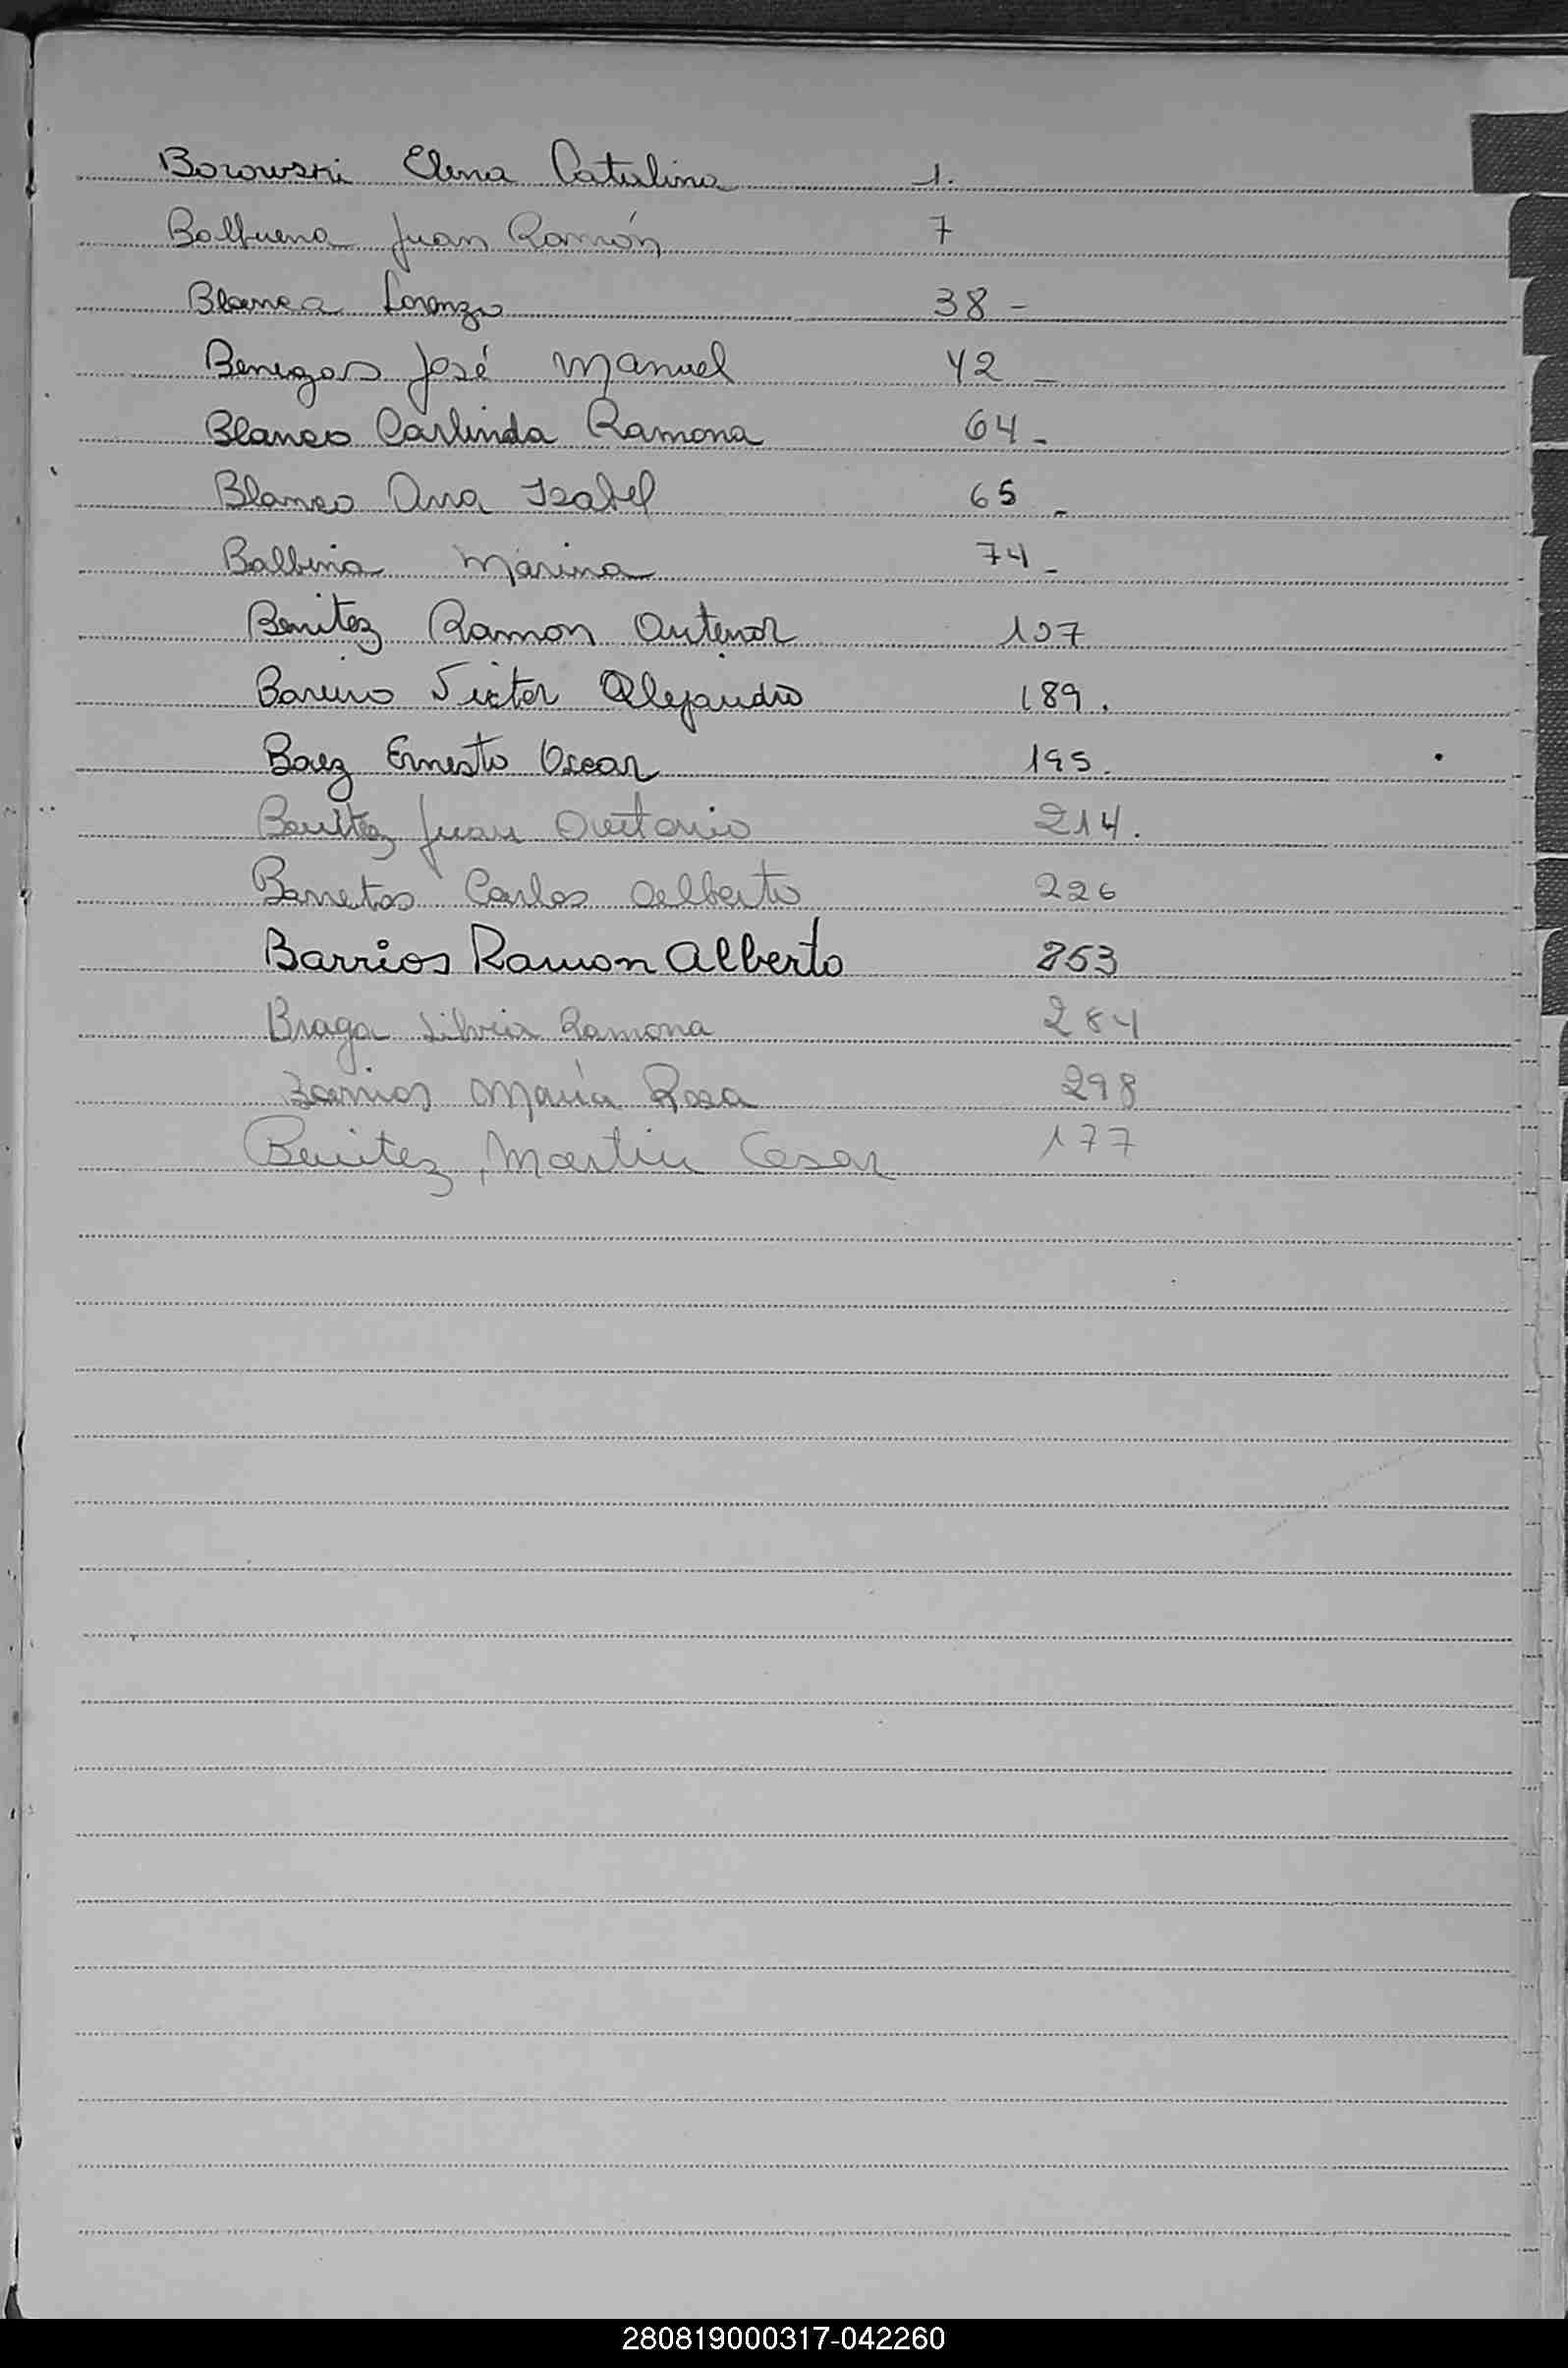 Borowski Elena Catalina 1.
Balbuena Juan Ramón 7
Blanca Lorenzo 38 -
Benegas José Manuel 42 -
Blanco Carlinda Ramona 64 -
Blanco Ana Isabel 65 -
Balbina Marina 74 -
Benitez Ramon Antenor 107
Victor Alejandro 189.
Baez Ernesto Oscar 195.
Benitez Juan Antonio 214.
Carlos Alberto 226
Barrios Ramon Alberto 253
Braga Silvia Ramona 284
Barrios María Rosa 298
Benitez, Martin Cesar 177
280819000317-042260